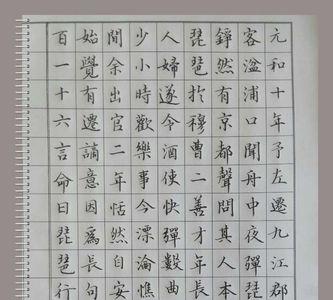 元和十年予左遷九江郡
客湓浦口聞舟中夜彈琵
錚然有京都聲問其人本
琵琶於穆曹二善才年長
人婦遂令酒使快彈數曲
少小時歡樂事今漂淪憔
間余出官二年恬然自安
始覺有遷謫意因爲長句
百一十六言命曰琵琶行